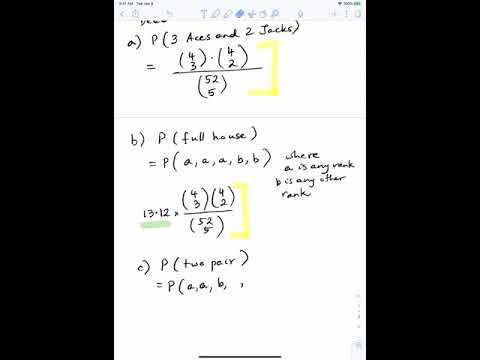 9:41 AM Tue Jan 9
a) P(3 Aces and 2 Jacks)
= (4 3)·(4 2)
(52 5)
b) P(full house)
= P(a, a, a, b, b) where
a is any rank
b is any other
rank
13·12 × (4 3)(4 2)
(52 5)
c) P(two pair)
= P(a, a, b, ,